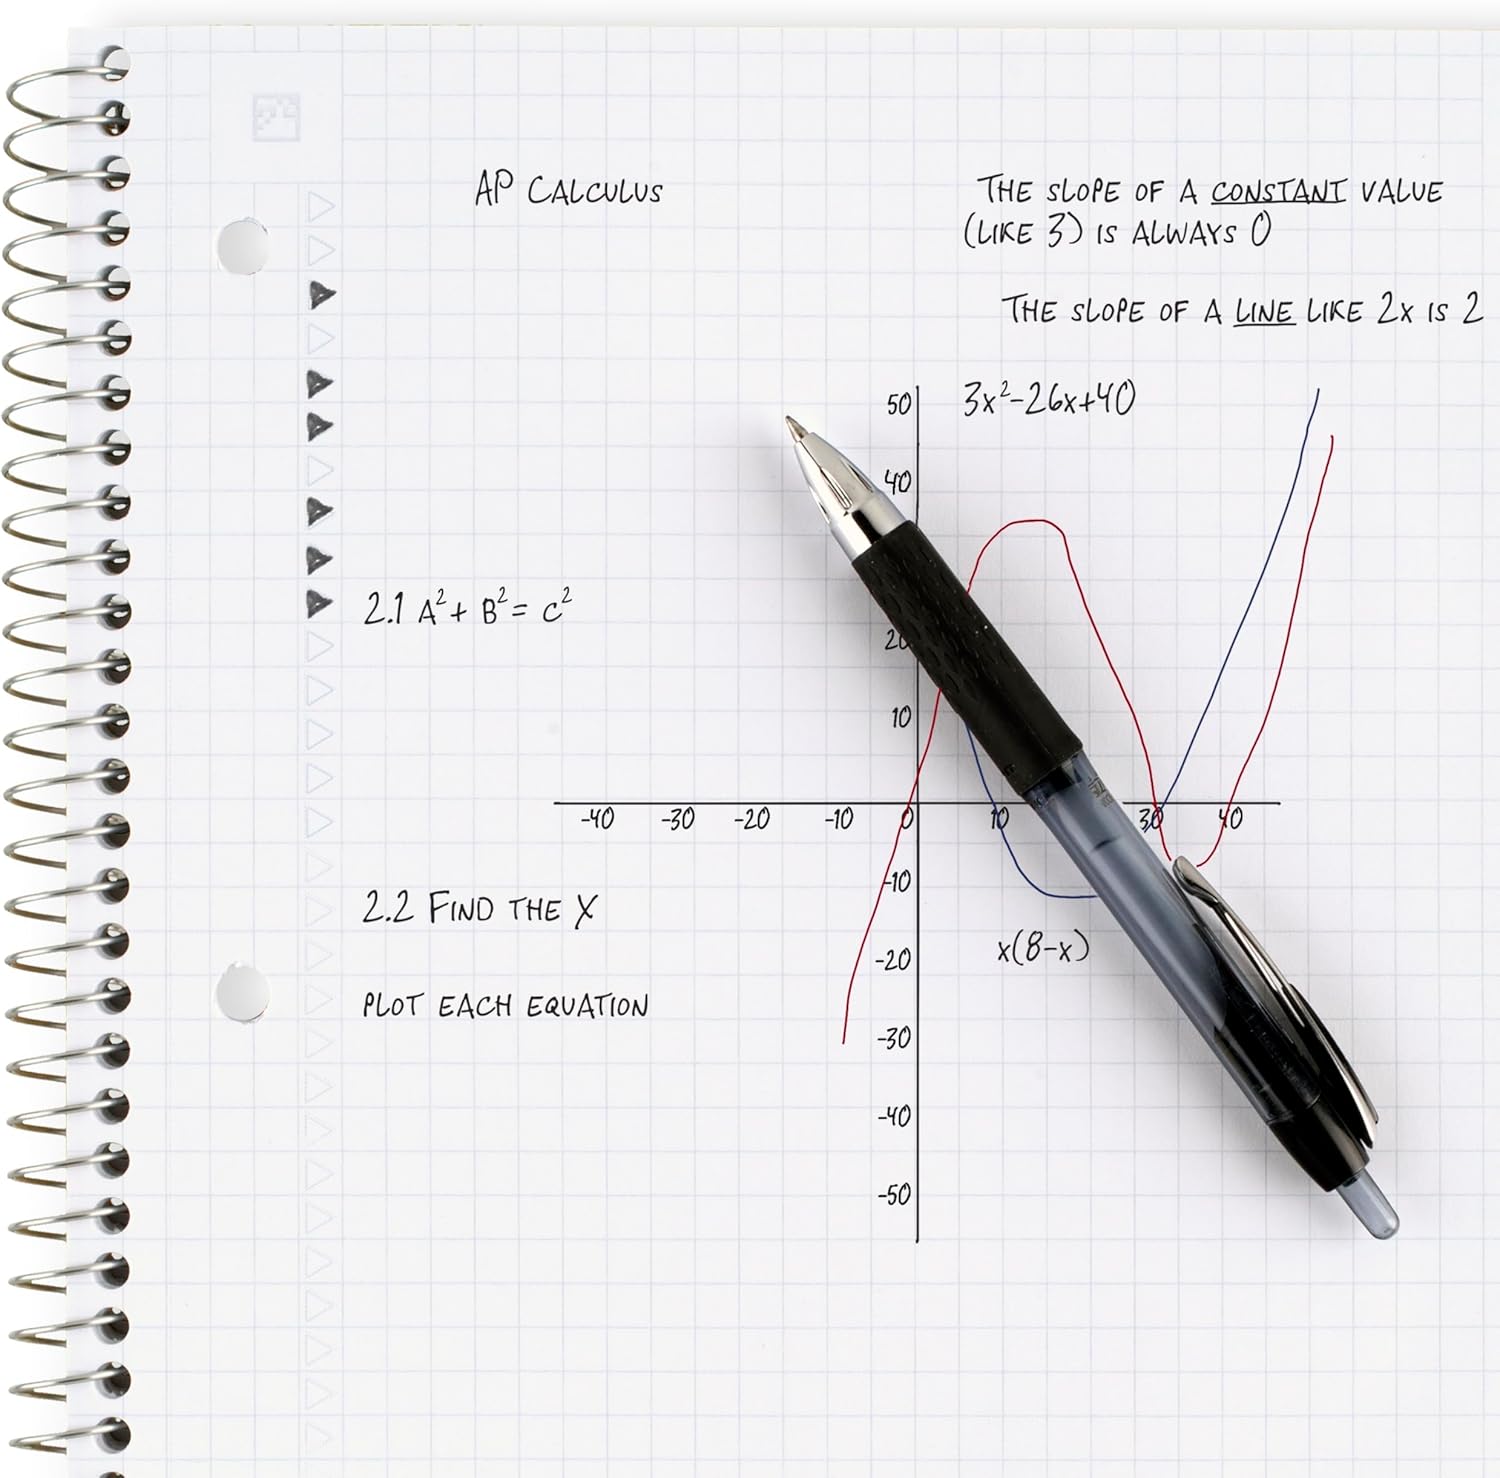 AP CALCULUS
THE SLOPE OF A CONSTANT VALUE
(LIKE 3) IS ALWAYS 0
THE SLOPE OF A LINE LIKE 2x IS 2
3x²-26x+40
50
40
20
10
-40 -30 -20 -10 0 10 30 40
-10
-20
-30
-40
-50
x(8-x)
2.1 A² + B² = C²
2.2 FIND THE X
PLOT EACH EQUATION